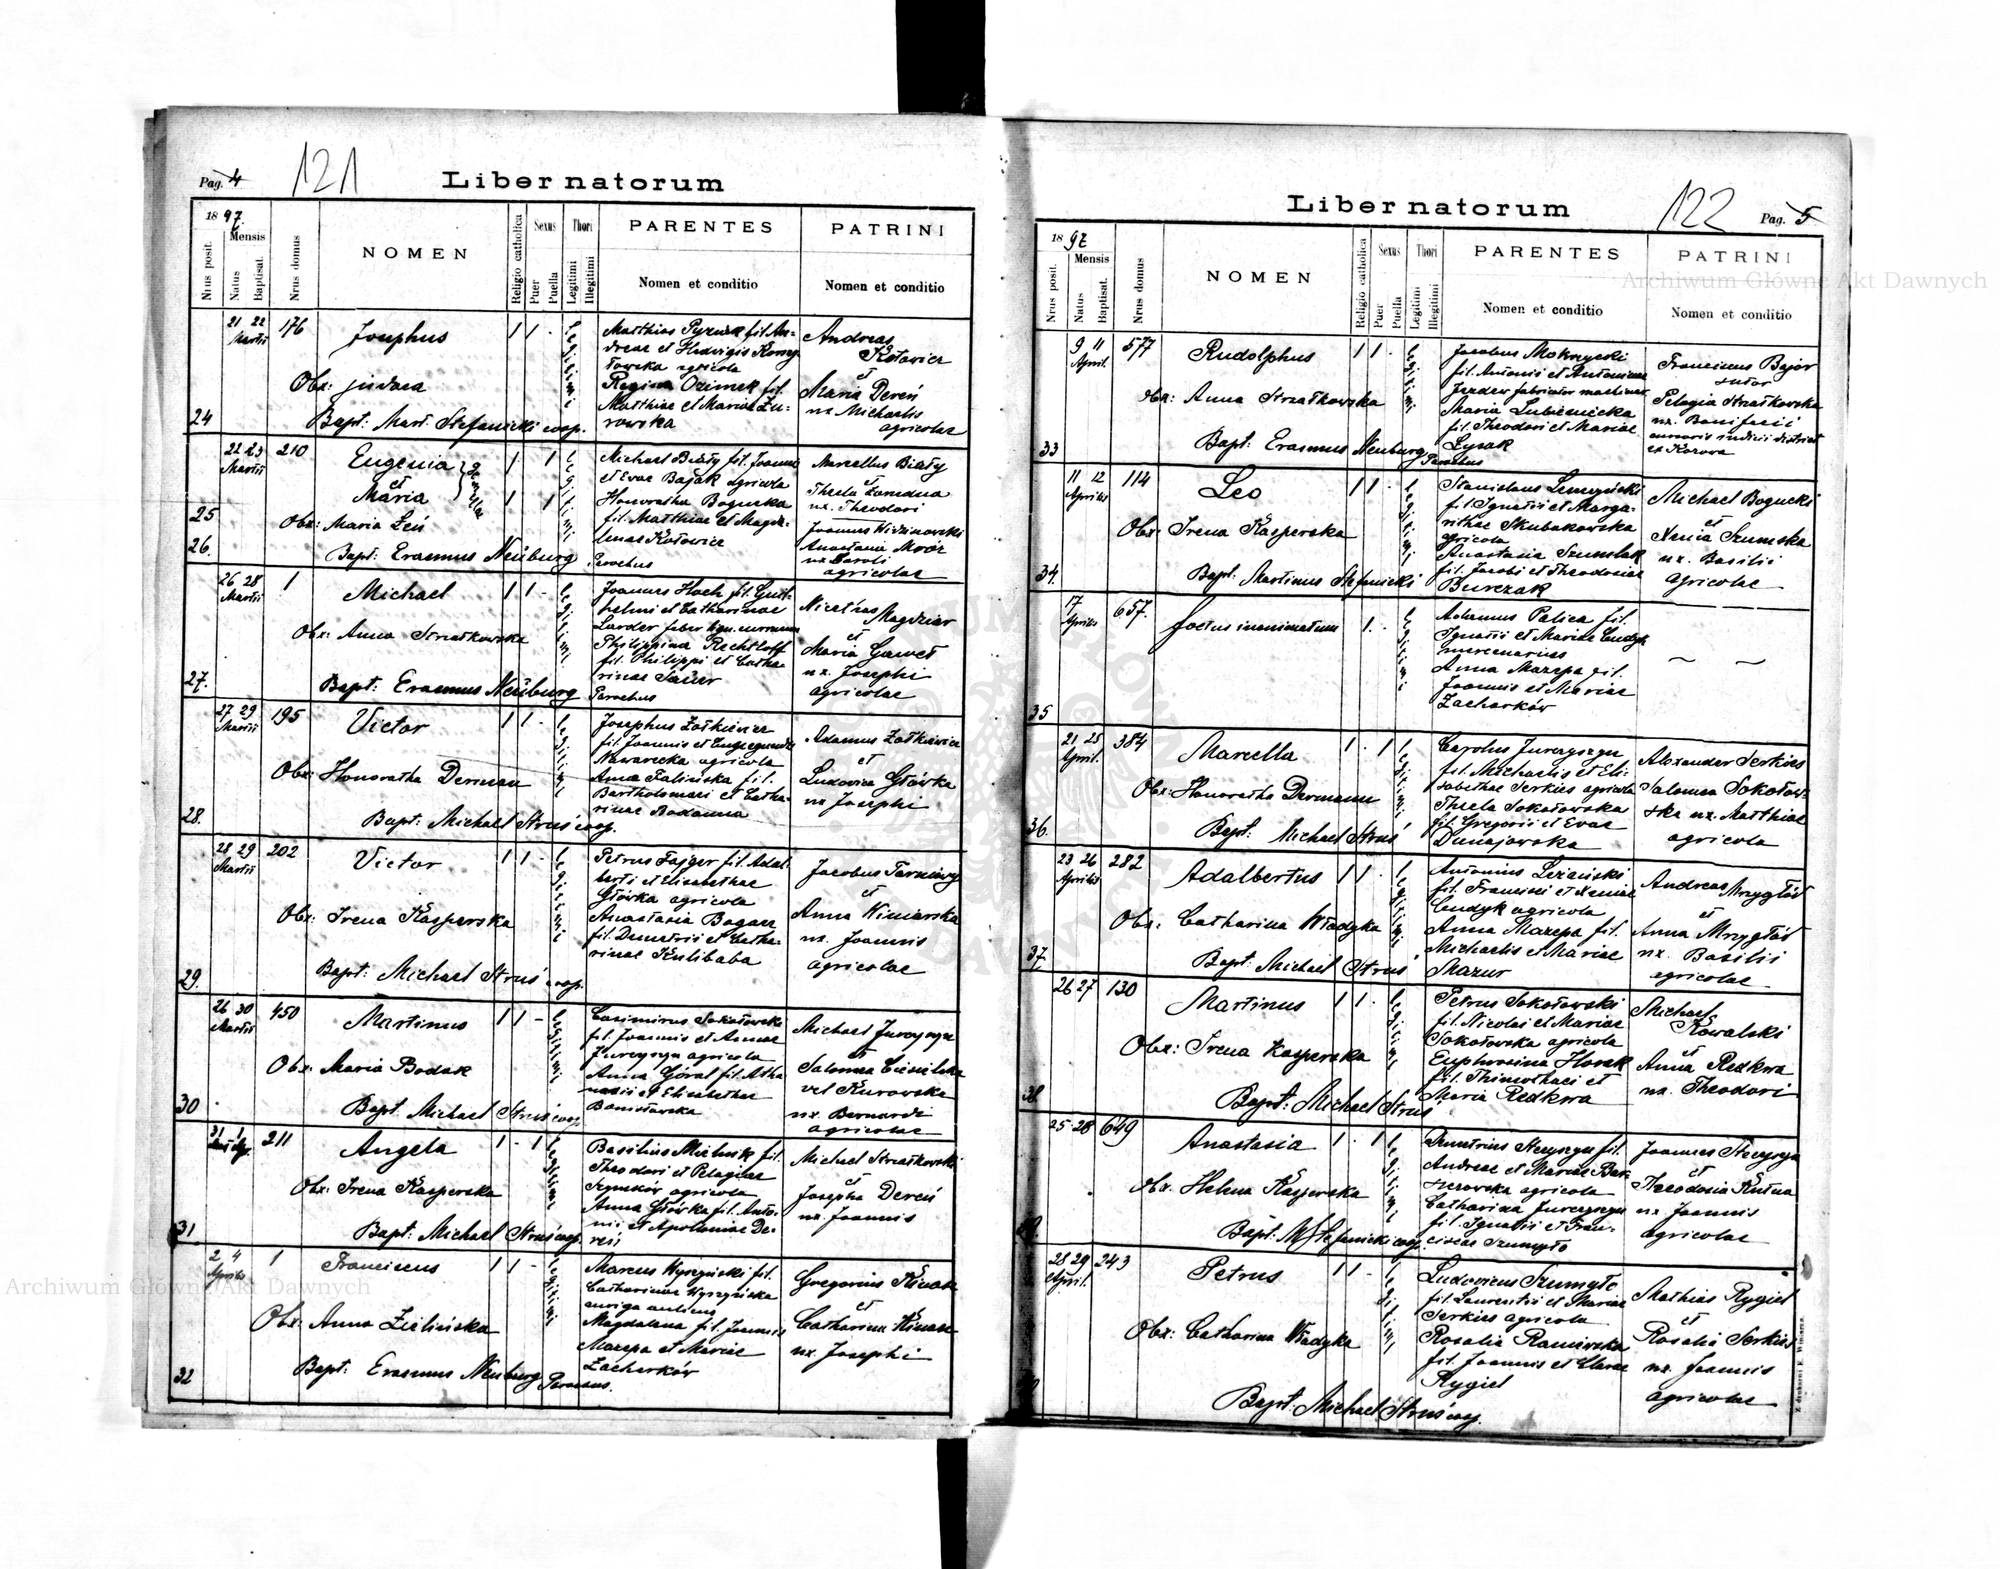 Pag. 4
121
Liber natorum
1897.
Nrus posit.
Mensis
Natus
Baptisat.
Nrus domus
NOMEN
Religio catholica
Sexus
Puer
Puella
Thori
Legitimi
Illegitimi
PARENTES
Nomen et conditio
PATRINI
Nomen et conditio
24
21 22
Martii
176
Josephus
Obx: judaea
Bapt: Mart. Stefanicki coop.
1 1 -
legitimi
Matthias Pyznak fil. An-
dreae et Hedvigis Kom
towska agricola
Regina Ozimek fil.
Matthiae et Mariae Żu-
rowska
Andreas
Kotowicz
et
Maria Dereń
ux. Michaelis
agricolae
25
26.
22 23
Martii
210
Eugenia
et
Maria
gemellae
Obx: Maria Leń
Bapt: Erasmus Neuburg
Parochus
1 1
1 1
legitimi
Michael Biały fil. Joannis
et Evae Bajak agricola
Honoratha Bogucka
fil. Matthiae et Magda-
lenae Kotowicz
Marcellus Biały
et
Thecla Zaredna
ux. Theodori
Joannes Widzinowski
Anastasia Mróz
ux Caroli
agricolae
27.
26 28
Martii
1
Michael
Obx: Anna Strzałkowska
Bapt: Erasmus Neuburg
Parochus
1 1 -
legitimi
Joannes Hoch fil. Guil-
helmi et Catharinae
Larder faber lign. curruum
Philippina Rechtloff
fil. Philippi et Catha-
rinae Sauer
Nicethas Magdziar
et
Maria Gaweł
ux. Josephi
agricolae
28.
27 29
Martii
195
Victor
Obx: Honoratha Derman
Bapt: Michael Struś coop.
1 1 -
legitimi
Josephus Żółkiewicz
fil. Joannis et Cunegundis
Nawarecka agricola
Anna Falińska fil.
Bartholomaei et Catha-
rinae Badanna
Adamus Żółkiewicz
et
Ludovica Główka
ux Josephi
29.
28 29
Martii
202
Victor
Obx: Irena Kasperska
Bapt: Michael Struś coop.
1 1 -
legitimi
Petrus Fajger fil. Adal-
berti et Elisabethae
Główka agricola
Anastasia Bogacz
fil. Demetrii et Catha-
rinae Kulibaba
Jacobus Tarnawy
et
Anna Winiarska
ux. Joannis
agricolae
30
26 30
Martii
450
Martinus
Obx: Maria Bodak
Bapt: Michael Struś coop
1 1 -
legitimi
Casimirus Sokołowski
fil. Joannis et Annae
Jureczyn agricola
Anna Góral fil. Atha
nasii et Elisabethae
Banistarska
Michael Jureczyn
et
Salomea Cisielska
vel Kurowska
ux. Bernardi
agricolae
31
31 1
211
Angela
Obx: Irena Kasperska
Bapt: Michael Struś coop
1 - 1
legitimi
Basilius Mielnik fil.
Theodori et Pelagiae
Szymków agricola
Anna Główka fil. Anto-
nii et Apoloniae De-
reń
Michael Strzałkowski
et
Josepha Dereń
ux. Joannis
32
2 4
Aprilis
1
Franciscus
Obx: Anna Zielińska
Bapt: Erasmus Neuburg Parochus.
1 1 -
legitimi
Marcus Wyszyński fil.
Catharinae Wyszyńska
auriga aulicus
Magdalena fil. Joannis
Mazepa et Mariae
Zacharków
Gregorius Kinasz
et
Catharina Kinasz
ux. Josephi
Liber natorum
122
Pag. 5
1897
Nrus posit.
Mensis
Natus
Baptisat.
Nrus domus
NOMEN
Religio catholica
Sexus
Puer
Puella
Thori
Legitimi
Illegitimi
PARENTES
Nomen et conditio
PATRINI
Nomen et conditio
33
9 11
April.
577
Rudolphus
Obx: Anna Strzałkowska
Bapt: Erasmus Neuburg
Parochus
1 1 -
legitimi
Jacobus Mokrzycki
fil. Antonii et Antoninae
Jezder fabricator machinar.
Maria Lubieniecka
fil. Theodori et Mariae
Lysak
Franciscus Bajor
sutor
Pelagia Strzałkowska
ux. Bonifacii
cursoris indicii district
ex Kozowa
34.
11 12
Aprilis
114
Leo
Obx: Irena Kasperska
Bapt. Martinus Stefanicki
1 1 -
legitimi
Stanislaus Leszczyński
fil. Ignatii et Marga-
rithae Skubakowska
agricola
Anastasia Szumlak
fil. Jacobi et Theodosiae
Burczak
Michael Bogucki
et
Xenia Szumska
ux. Basilii
agricolae
35
17
Aprilis
657.
foetus inanimatum
1. -
legitimi
Adamus Palica fil.
Ignatii et Mariae Cendyk
mercenarius
Anna Mazepa fil.
Joannis et Mariae
Zacharków
36.
21 25
April.
384
Marcella
Obx: Honoratha Dermann
Bapt: Michael Struś
1 - 1
legitimi
Carolus Jureczyn
fil. Michaelis et Eli-
sabethae Serkies agricola
Thecla Sokołowska
fil. Gregorii et Evae
Dunajowska
Alexander Serkies
Salomea Sokołow-
ska ux. Matthiae
agricola
37.
23 26
Aprilis
282
Adalbertus
Obx: Catharina Władyka
Bapt: Michael Struś
1 1 -
legitimi
Antonius Leżański
fil. Francisci et Xeniae
Cendyk agricola
Anna Mazepa fil.
Michaelis et Mariae
Mazur
Andreas Mrzygłód
et
Anna Mrzygłód
ux. Basilii
agricolae
38
26 27
130
Martinus
Obx: Irena Kasperska
Bapt: Michael Struś
1 1 -
legitimi
Petrus Sokołowski
fil. Nicolai et Mariae
Sokołowska agricola
Euphrosina Horek
fil. Thimothaei et
Maria Redkwa
Michael
Kowalski
et
Anna Redkwa
ux. Theodori
25 28
649
Anastasia
Obx: Helena Kasperska
Bapt: M Stefanicki coop.
1 - 1
legitimi
Demetrius Steczyszyn fil.
Andreae et Mariae Bar-
szczowska agricola
Catharina Jureczyn
fil. Ignatii et Fran-
ciscae Szumyło
Joannes Steczyszyn
et
Theodosia Kutna
ux Joannis
agricolae
28 29
April.
243
Petrus
Obx: Catharina Władyka
Bapt: Michael Struś coop.
1 1 -
legitimi
Ludovicus Szumyło
fil. Laurentii et Mariae
Serkies agricola
Rosalia Raniewska
fil. Joannis et Clarae
Rygiel
Mathias Rygiel
et
Rosalia Serkies
ux. Joannis
agricolae
Z drukarni E. Winiarza.
Archiwum Główne Akt Dawnych
Archiwum Główne Akt Dawnych